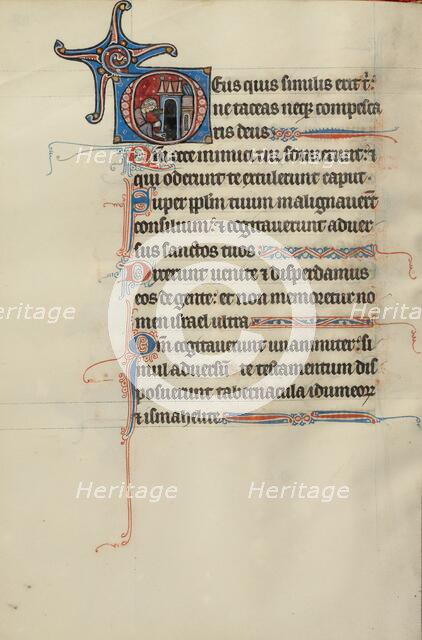 Deus quis similis erit t':
ne taceas neq; compesca
ris deus
Qm ecce inimici tui sonuerunt: &
qui oderunt te extulerunt caput.
Super pplm tuum malignauert
consilium: & cogitauerunt aduer
sus sanctos tuos
Dixerunt uenite & disperdamus
eos de gente: et non memoretur no
men israel ultra
Qm cogitauerunt unanimiter: si
mul aduersū te testamentum dis
posuerunt tabernacula idumeoꝝ
& ismahelite
Heritage Heritage
Heritage Heritage
Heritage Heritage